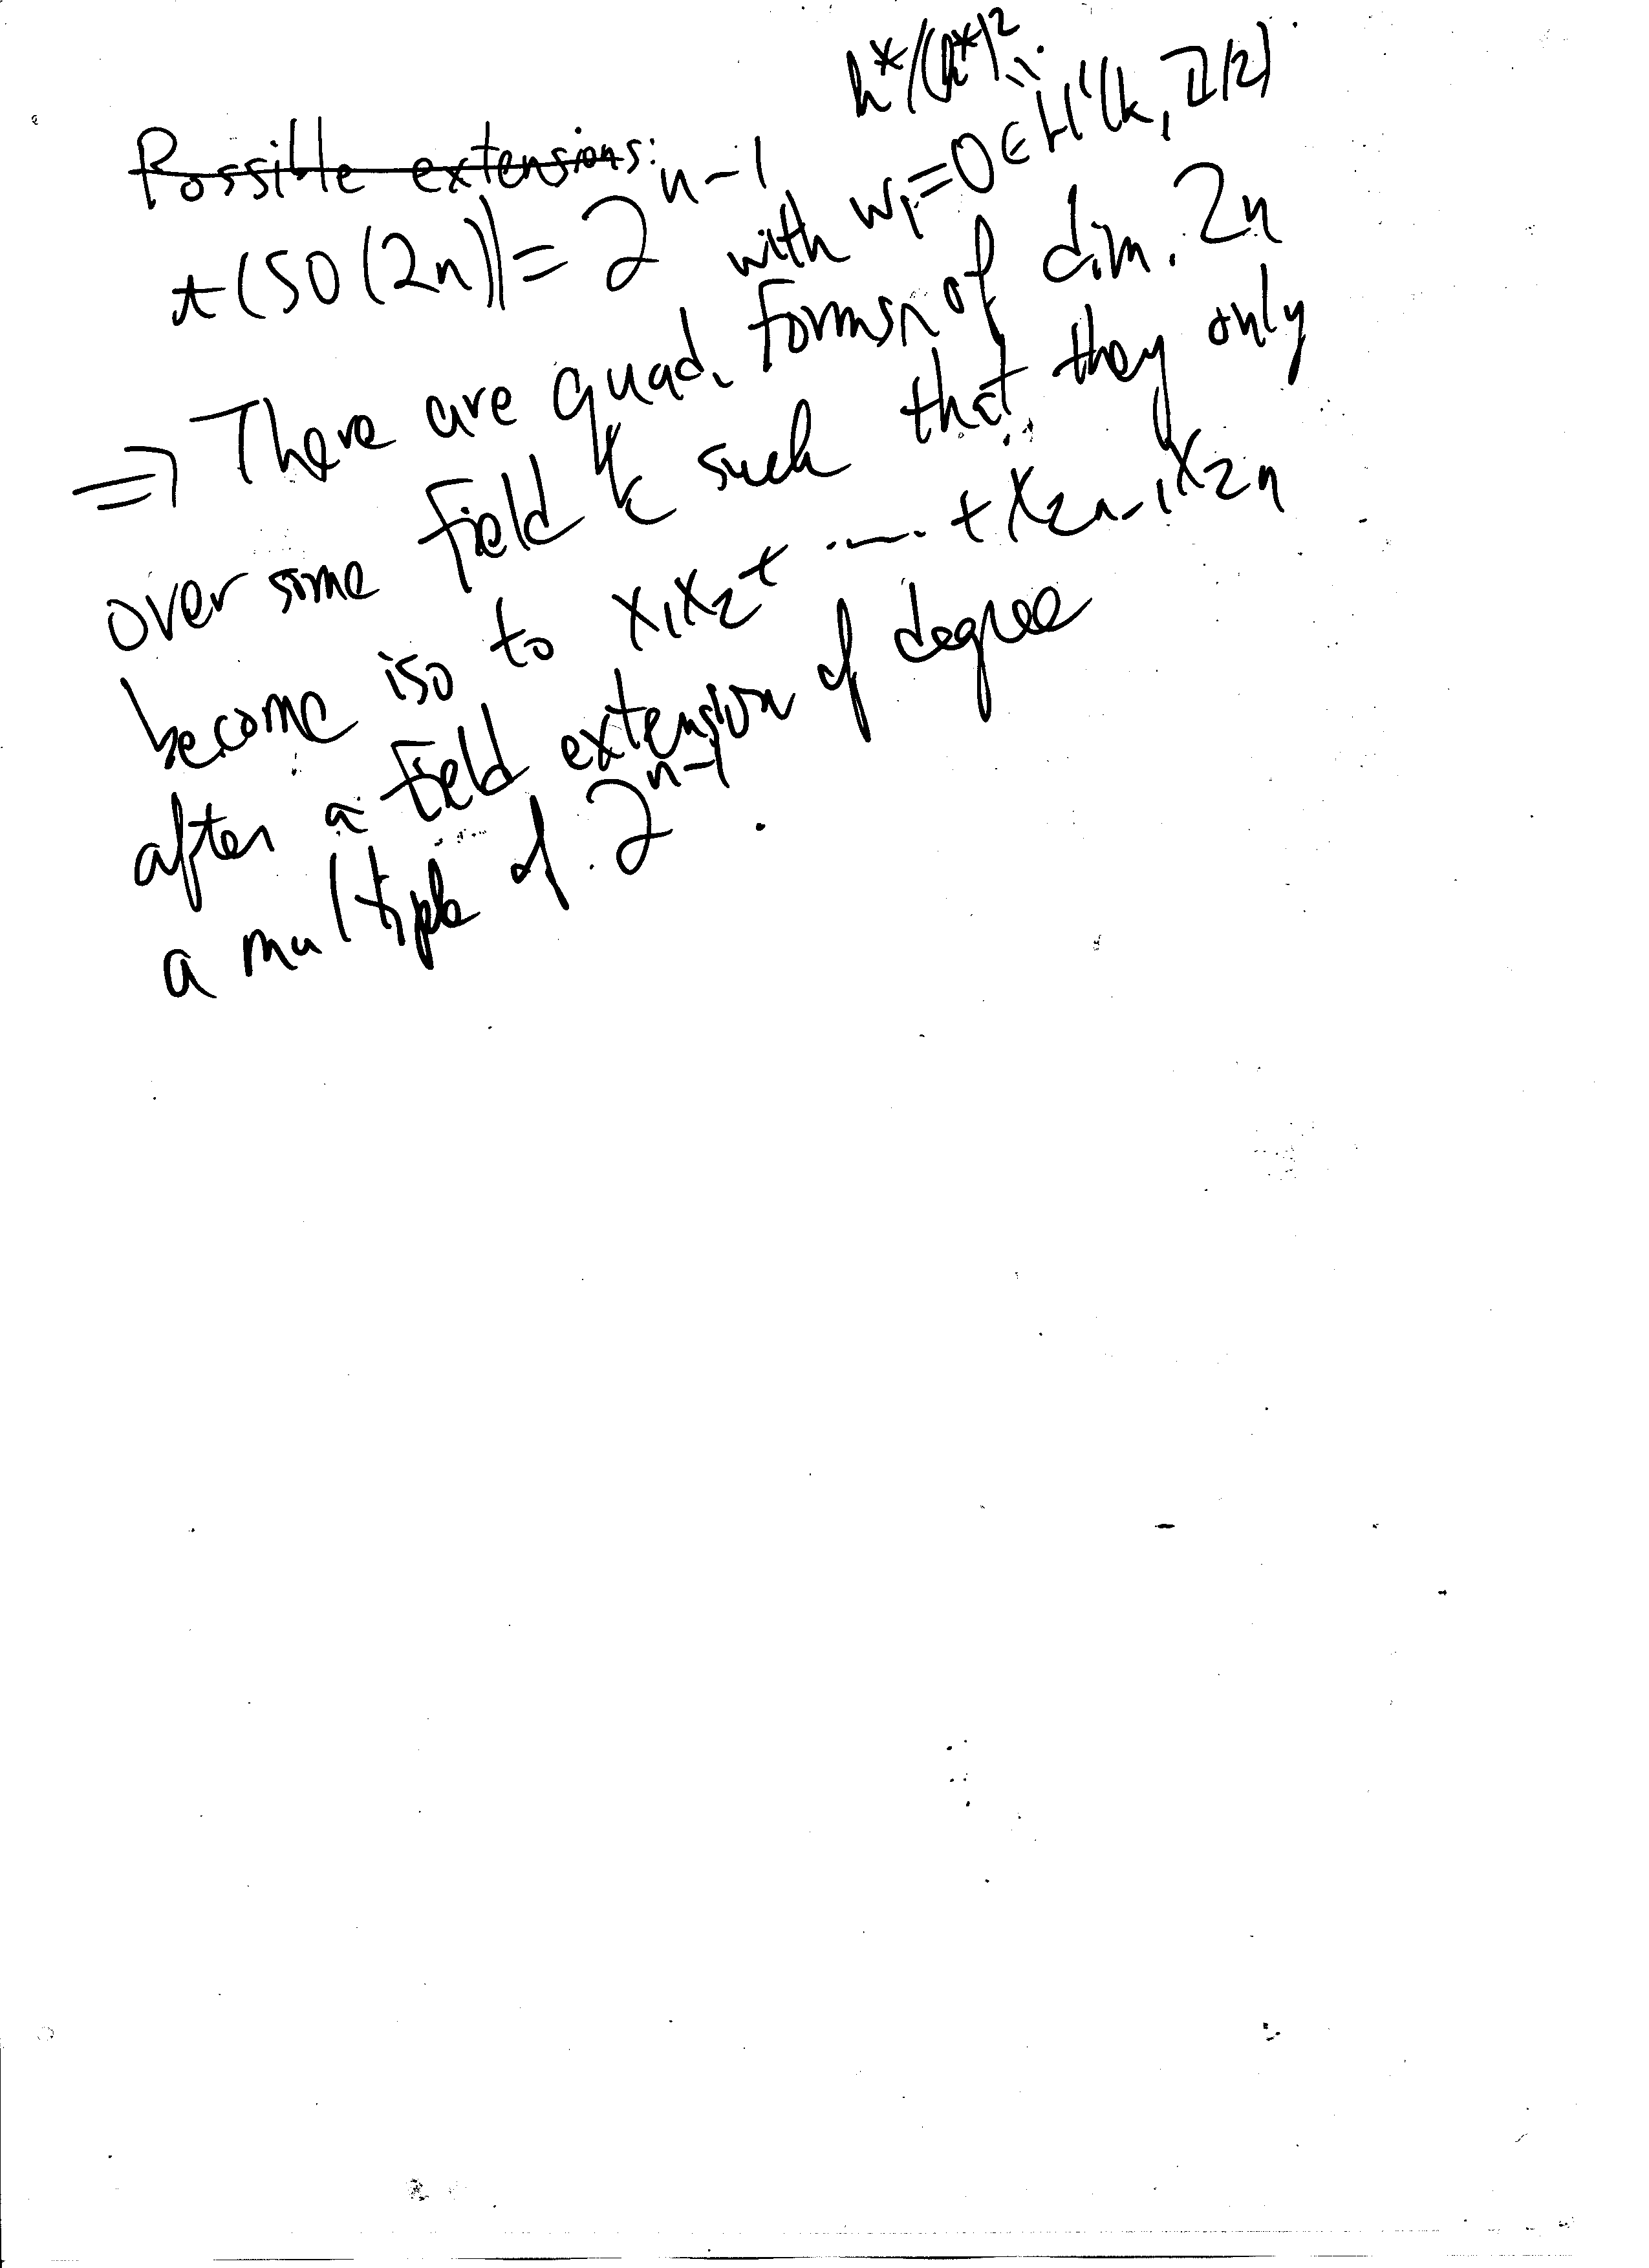 Possible extensions:
k*/(k*)²
t(SO(2n)) = 2^{n-1} with w₁=0 ∈ H¹(k, ℤ/2)
⇒ There are quad. forms of dim. 2n
over some field k such that they only
become iso to x₁x₂ + ..... + x_{2n-1}x_{2n}
after a field extension of degree
a multiple of 2^{n-1}.